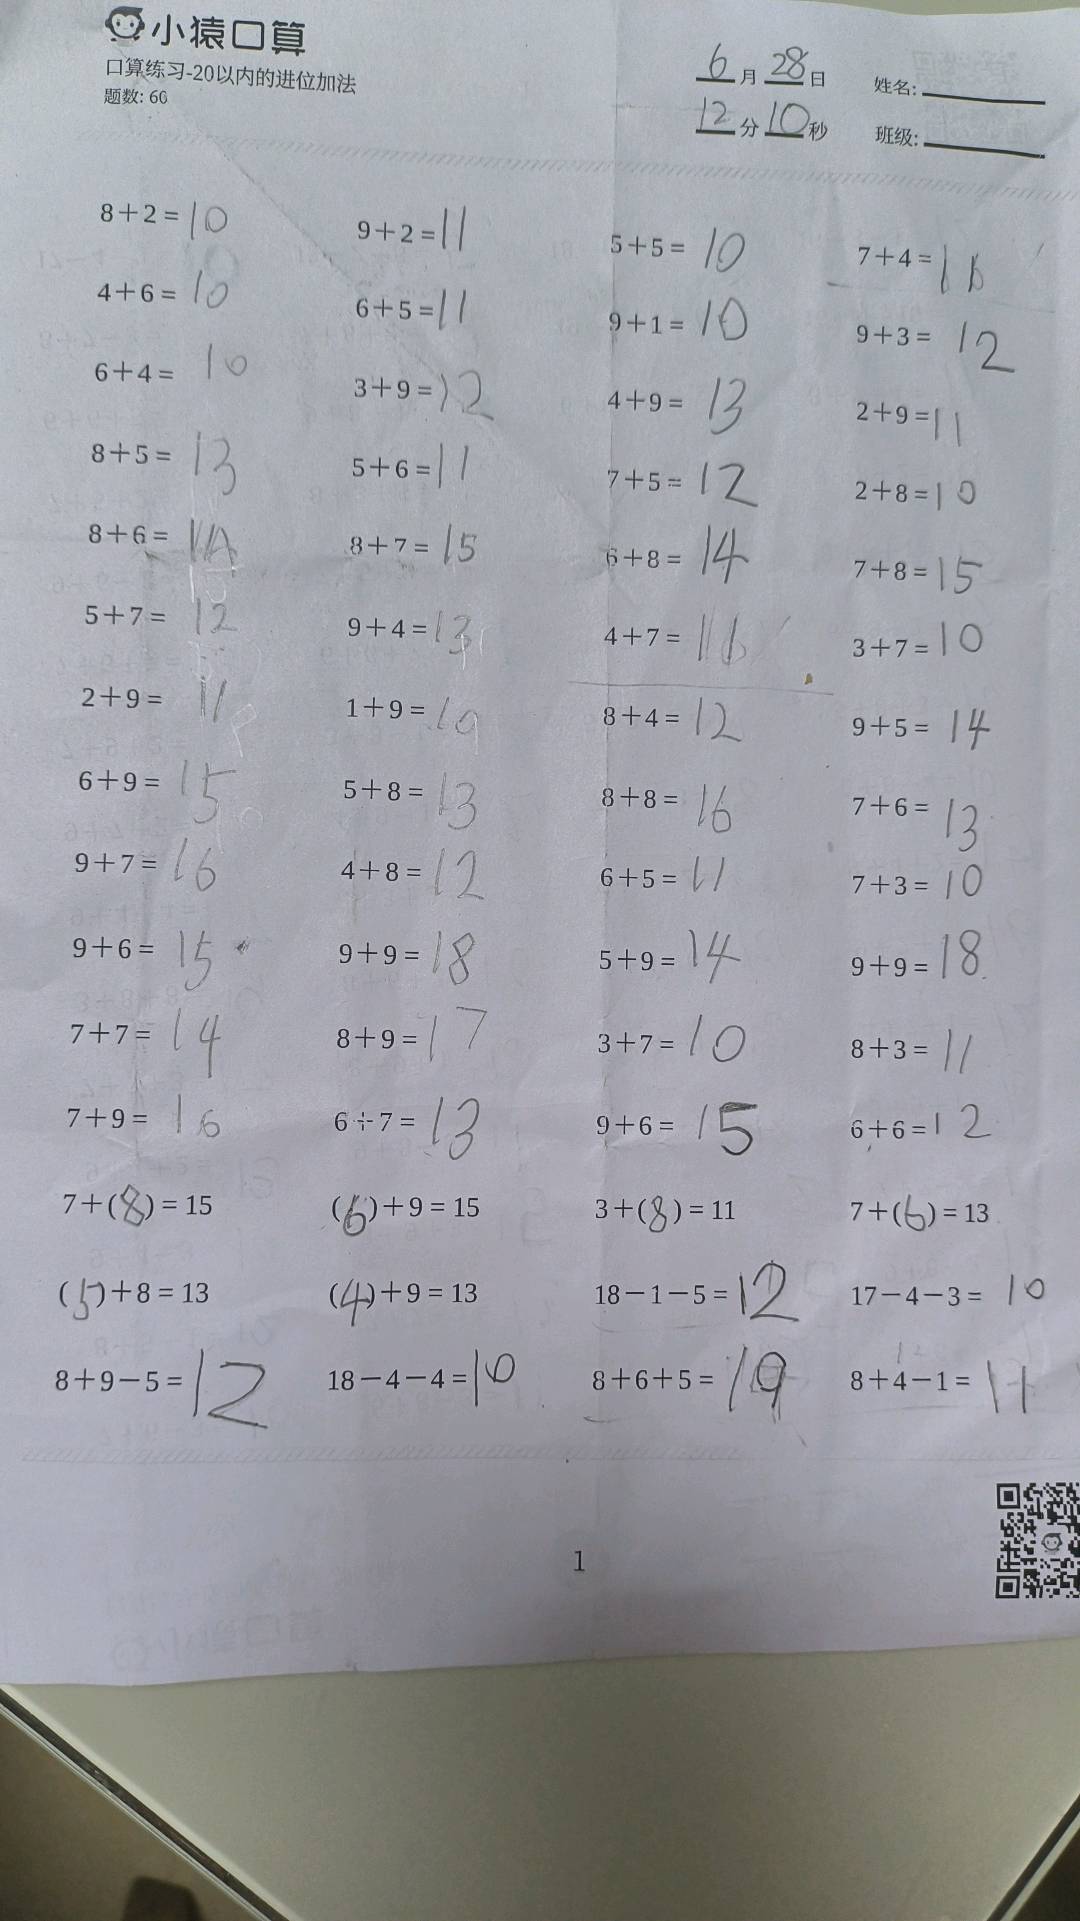 小猿口算
口算练习-20以内的进位加法
题数: 60
6月28日 姓名:
12分10秒 班级:
8+2=10 9+2=11 5+5=10 7+4=
4+6=10 6+5=11 9+1=10 9+3=12
6+4=10 3+9=12 4+9=13 2+9=11
8+5=13 5+6=11 7+5=12 2+8=10
8+6= 8+7=15 6+8=14 7+8=15
5+7=12 9+4=13 4+7= 3+7=10
2+9=11 1+9=10 8+4=12 9+5=14
6+9=15 5+8=13 8+8=16 7+6=13
9+7=16 4+8=12 6+5=11 7+3=10
9+6=15 9+9=18 5+9=14 9+9=18
7+7=14 8+9=17 3+7=10 8+3=11
7+9=16 6+7=13 9+6=15 6+6=12
7+(8)=15 (6)+9=15 3+(8)=11 7+(6)=13
(5)+8=13 (4)+9=13 18-1-5=12 17-4-3=10
8+9-5=12 18-4-4=10 8+6+5=19 8+4-1=11
1